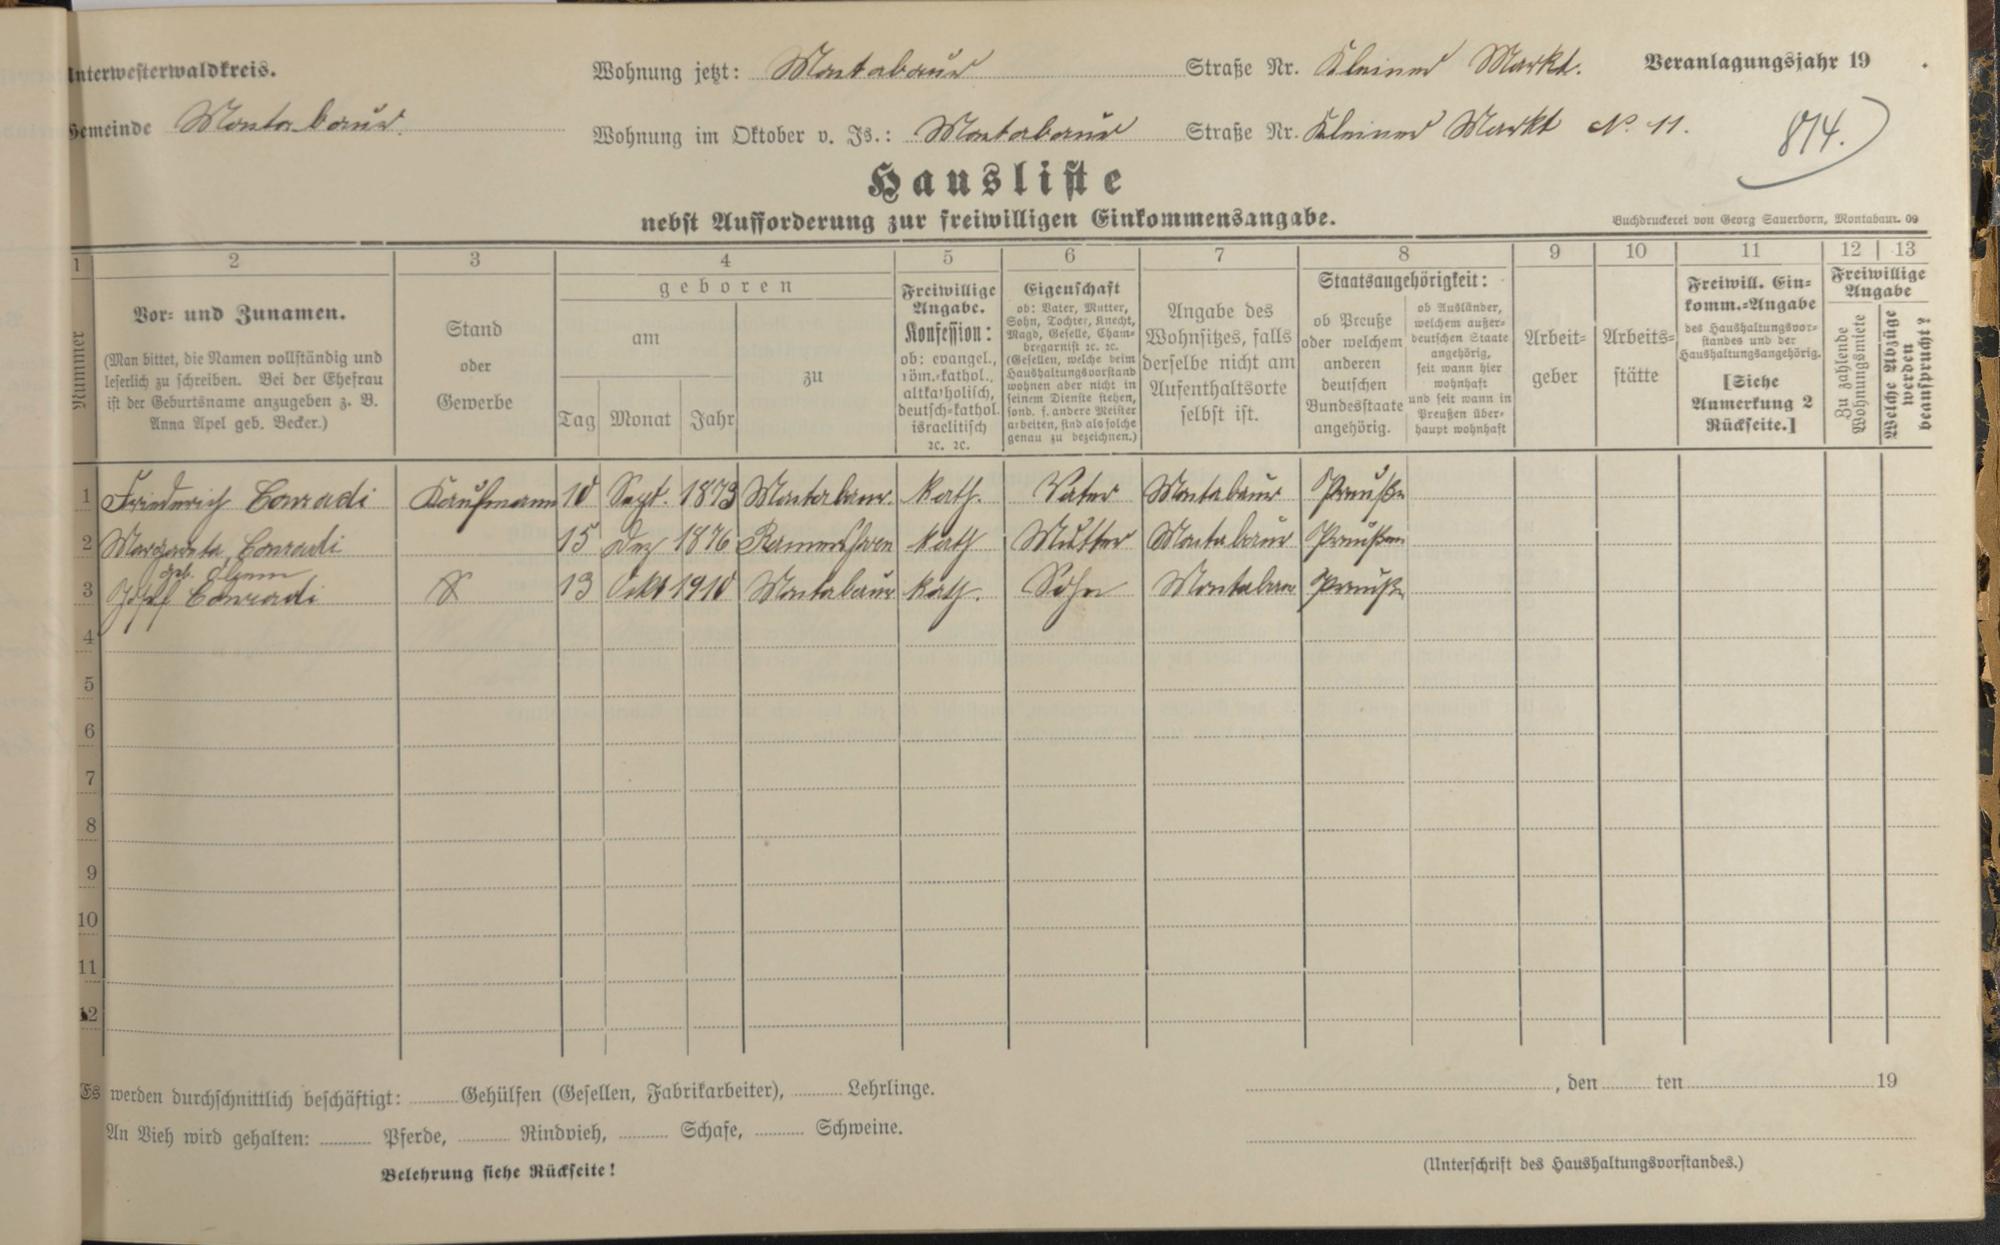 Unterwesterwaldkreis.
Wohnung jetzt: Montabaur Straße Nr. Kleiner Markt. Veranlagungsjahr 19 .
Gemeinde Montabaur.
Wohnung im Oktober v. Js.: Montabaur Straße Nr. Kleiner Markt No. 11.
814.
Hausliste
nebst Aufforderung zur freiwilligen Einkommensangabe.
Buchdruckerei von Georg Sauerborn, Montabaur. 09
1 2 3 4 5 6 7 8 9 10 11 12 13
Nummer
Vor- und Zunamen.
(Man bittet, die Namen vollständig und
leserlich zu schreiben. Bei der Ehefrau
ist der Geburtsname anzugeben z. B.
Anna Apel geb. Becker.)
Stand
oder
Gewerbe
geboren
am
Tag Monat Jahr
zu
Freiwillige
Angabe.
Konfession:
ob: evangel.,
röm.-kathol.,
altkatholisch,
deutsch-kathol.
israelitisch
ꝛc. ꝛc.
Eigenschaft
ob: Vater, Mutter,
Sohn, Tochter, Knecht,
Magd, Geselle, Cham-
bregarnist ꝛc. ꝛc.
(Gesellen, welche beim
Haushaltungsvorstand
wohnen aber nicht in
seinem Dienste stehen,
sond. f. andere Meister
arbeiten, sind als solche
genau zu bezeichnen.)
Angabe des
Wohnsitzes, falls
derselbe nicht am
Aufenthaltsorte
selbst ist.
Staatsangehörigkeit:
ob Preuße
oder welchem
anderen
deutschen
Bundesstaate
angehörig.
ob Ausländer,
welchem außer-
deutschen Staate
angehörig,
seit wann hier
wohnhaft
und seit wann in
Preußen über-
haupt wohnhaft
Arbeit-
geber
Arbeits-
stätte
Freiwill. Ein-
komm.-Angabe
des Haushaltungsvor-
standes und der
Haushaltungsangehörig.
[Siehe
Anmerkung 2
Rückseite.]
Freiwillige
Angabe
Zu zahlende
Wohnungsmiete
Welche Abzüge
werden
beansprucht?
1 Friederich Conradi Kaufmann 10 Sept. 1873 Montabaur. kath. Vater Montabaur Preuße
2 Margareta Conradi 15 Dez 1876 kath Mutter Montabaur Preußen
geb.
3 Josef Conradi 13 Okt 1910 Montabaur kath. Sohn Montabaur Preuße
4
5
6
7
8
9
10
11
12
Es werden durchschnittlich beschäftigt: Gehülfen (Gesellen, Fabrikarbeiter), Lehrlinge.
, den ten 19
An Vieh wird gehalten: Pferde, Rindvieh, Schafe, Schweine.
Belehrung siehe Rückseite!
(Unterschrift des Haushaltungsvorstandes.)